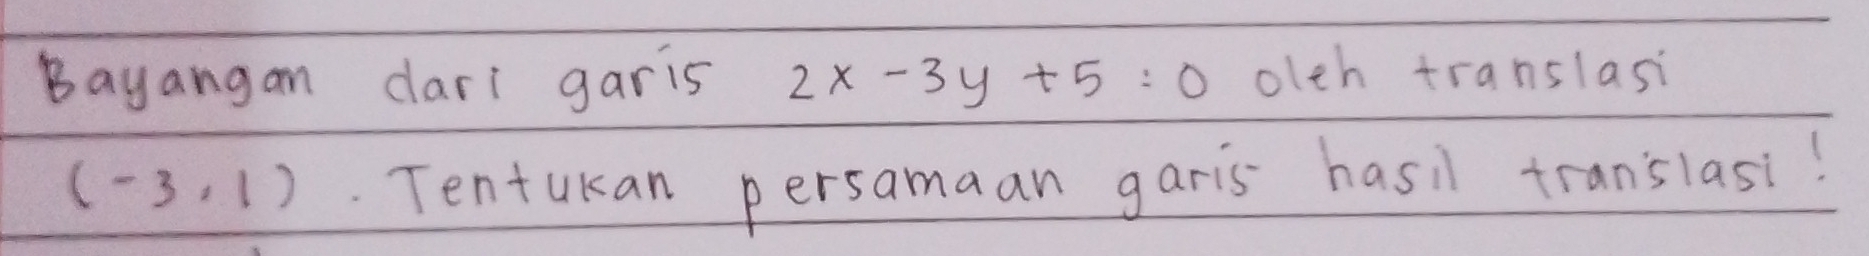 Bayangan dari garis 2x - 3y + 5 = 0 oleh translasi
(-3,1). Tentukan persamaan garis hasil translasi!